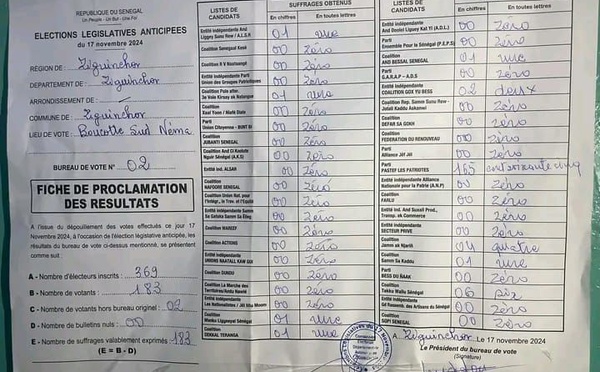 REPUBLIQUE DU SENEGAL
Un Peuple - Un But - Une Foi
ELECTIONS LEGISLATIVES ANTICIPEES
du 17 novembre 2024
REGION DE : Ziguinchor
DEPARTEMENT DE : Ziguinchor
ARRONDISSEMENT DE :
COMMUNE DE : Ziguinchor
LIEU DE VOTE : Boucotte Sud Néma
BUREAU DE VOTE N° 02
FICHE DE PROCLAMATION
DES RESULTATS
A l'issue du dépouillement des votes effectués ce jour 17
Novembre 2024, à l'occasion de l'élection législative anticipée, les
résultats du bureau de vote ci-dessus mentionné, se présentent
comme suit :
A - Nombre d'électeurs inscrits : 369
B - Nombre de votants : 183
C - Nombre de votants hors bureau originel : 02
D - Nombre de bulletins nuls : 00
E - Nombre de suffrages valablement exprimés : 183
(E = B - D)
LISTES DE
CANDIDATS
SUFFRAGES OBTENUS
En chiffres
En toutes lettres
Entité indépendante And
Liggey Sunu Rew / A.L.S.R
01 une
Coalition Senegaal Kesé
00 zéro
Coalition R V Naatangué
00 zéro
Entité indépendante Parti
Union des Groupes Patriotiques
00 zéro
Coalition Pole alter.
3e Voie Kiraay ak Natangue
01 une
Coalition
Xaal Yoon / Mafé Diate
00 zéro
Parti
Union Citoyenne - BUNT BI
00 zéro
Coalition
JUBANTI SENEGAL
00 zéro
Coalition And Ci Koolute
Nguir Sénégal (A.K.S)
00 zéro
Entité Ind. ALSAR
00 zéro
Coalition
NAFOORE SENEGAL
00 zéro
00 zéro
Entité indépendante Samm
00 zéro
Coalition
MAREEY
00 zéro
Coalition ACTIONS
00 zéro
Entité indépendante
00 zéro
Coalition GUNDU
00 zéro
Coalition La Marche des
00 zéro
Entité indépendante
00 zéro
Coalition
Wareef
Manko Liggeeyal Sénégal
01 une
Coalition
DEKKAL TERANGA
01 une
LISTES DE
CANDIDATS
En chiffres
En toutes lettres
Entité indépendante
And Doolel Liguey Kat Yi (A.D.L)
00 zéro
Parti
Ensemble Pour le Sénégal (P.E.P.S)
00 zéro
Coalition
AND BESSAL SENEGAL
01 une
Parti
G.A.R.A.P - A.D.S
00 zéro
Entité indépendante
COALITION GOX YU BEES
02 deux
Coalition Rep. Samm Sunu Rew -
00 zéro
Coalition
DEFAR SA GOKH
00 zéro
Coalition
FEDERATION DU RENOUVEAU
00 zéro
Parti
Alliance Jëf Jël
00 zéro
Parti
PASTEF LES PATRIOTES
165 cent soixante cinq
Entité indépendante Alliance
Nationale pour la Patrie (A.N.P)
00 zéro
Coalition
FARLU
00 zéro
Entité Ind. And Suxali Prod.,
Transp. ak Commerce
00 zéro
Entité indépendante
SECTEUR PRIVE
00 zéro
Coalition
Jamm ak Njariñ
04 quatre
Coalition
Samm Sa Kaddu
01 une
Parti
BESS DU ÑAKK
00 zéro
Coalition
Takku Wallu Sénégal
06 six
Entité indépendante
00 zéro
Coalition
SOPI SENEGAL
00 zéro
A Ziguinchor le 17 novembre 2024
Le Président du bureau de vote
(Signature)